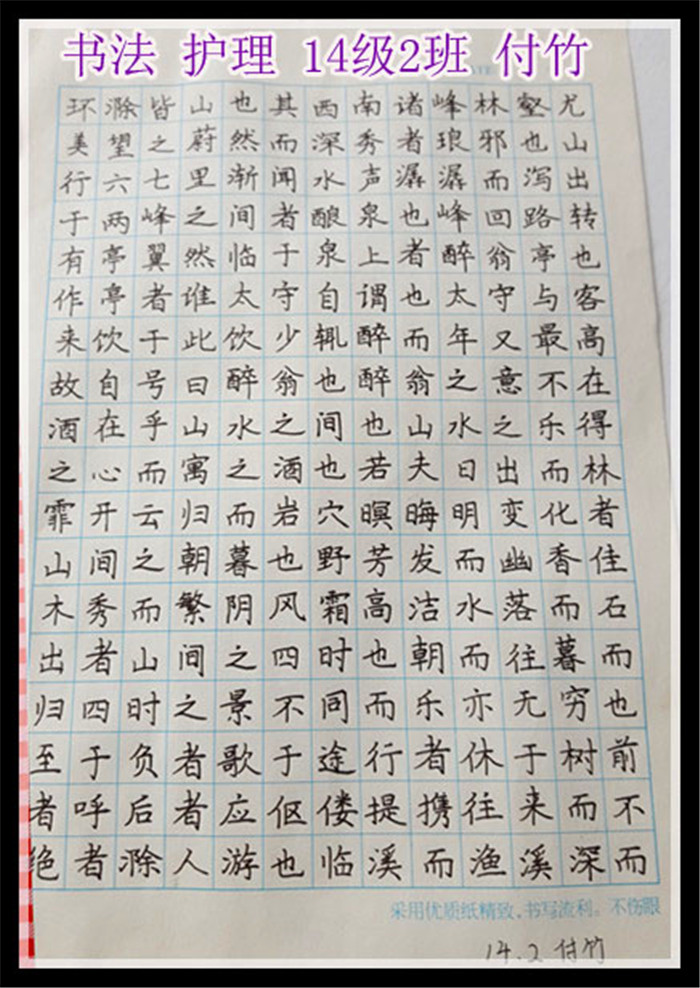 书法 护理 14级2班 付竹
环滁皆山也其西南诸峰林壑尤
美望之蔚然而深秀者琅邪也山
行六七里渐闻水声潺潺而泻出
于两峰之间者酿泉也峰回路转
有亭翼然临于泉上者醉翁亭也
作亭者谁太守自谓也太守与客
来饮于此饮少辄醉而年又最高
故自号曰醉翁也醉翁之意不在
酒在乎山水之间也山水之乐得
之心而寓之酒也若夫日出而林
霏开云归而岩穴暝晦明变化者
山间之朝暮也野芳发而幽香佳
木秀而繁阴风霜高洁水落而石
出者山间之四时也朝而往暮而
归四时之景不同而乐亦无穷也
至于负者歌于途行者休于树前
者呼后者应伛偻提携往来而不
绝者滁人游也临溪而渔溪深而
采用优质纸精致，书写流利。不伤眼
14.2 付竹